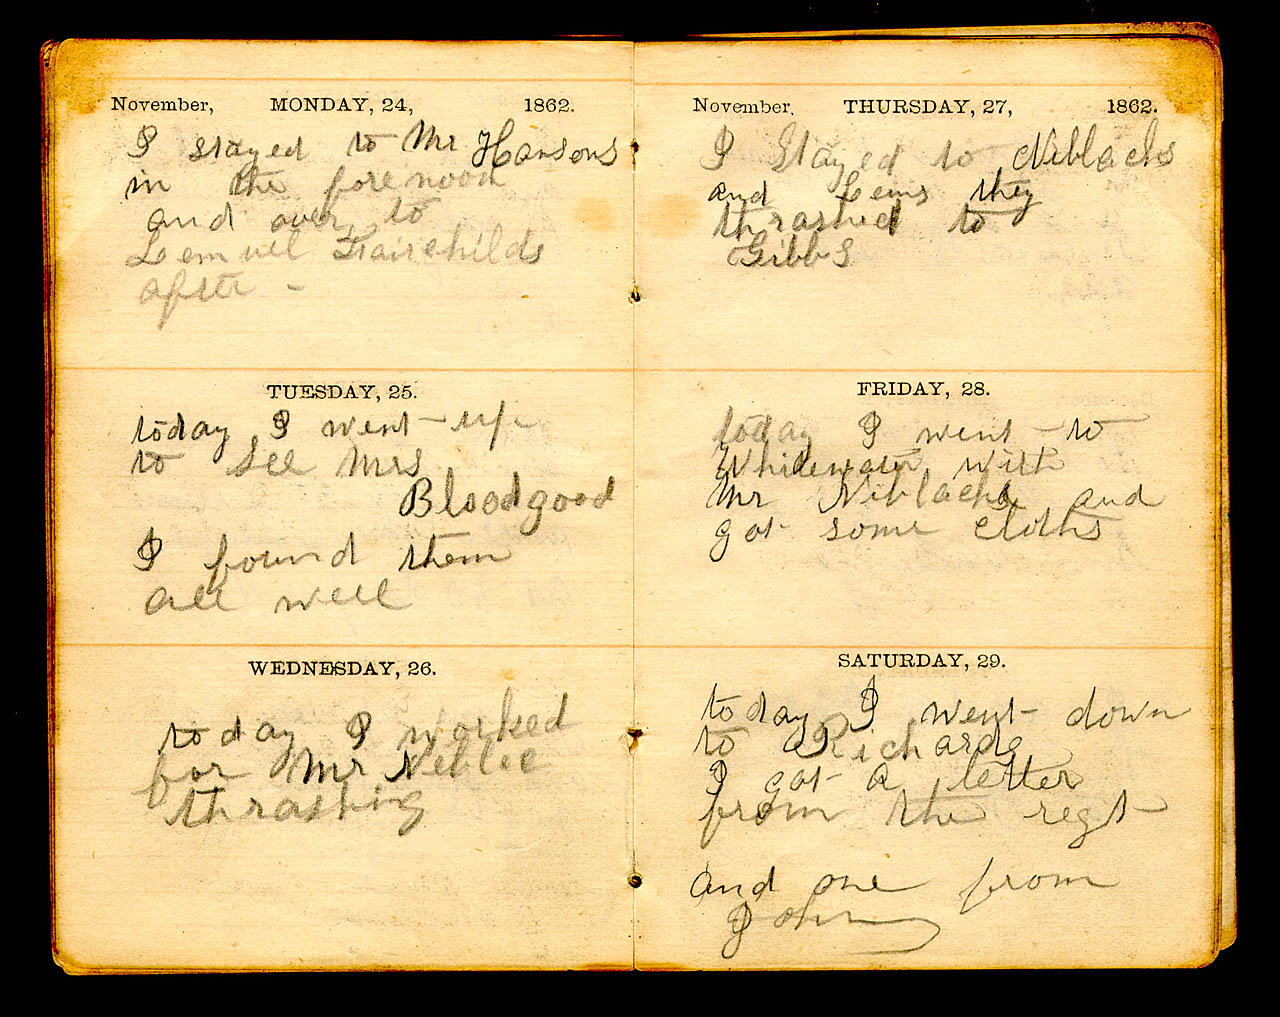 November, MONDAY, 24, 1862.
I stayed to Mr Hansons
in the forenoon
and over to
Lemuel Fairchilds
after -
TUESDAY, 25.
today I went up
to See Mrs
Bloodgood
I found them
all well
WEDNESDAY, 26.
today I worked
for Mr Neblee
thrashing
November, THURSDAY, 27, 1862.
I Stayed to Niblacks
and Lems they
thrashed to
Gibbs
FRIDAY, 28.
today I went to
Whitewater with
Mr Niblacks and
got some cloths
SATURDAY, 29.
today I went down
to Richards
I got a letter
from the regt
and one from
John